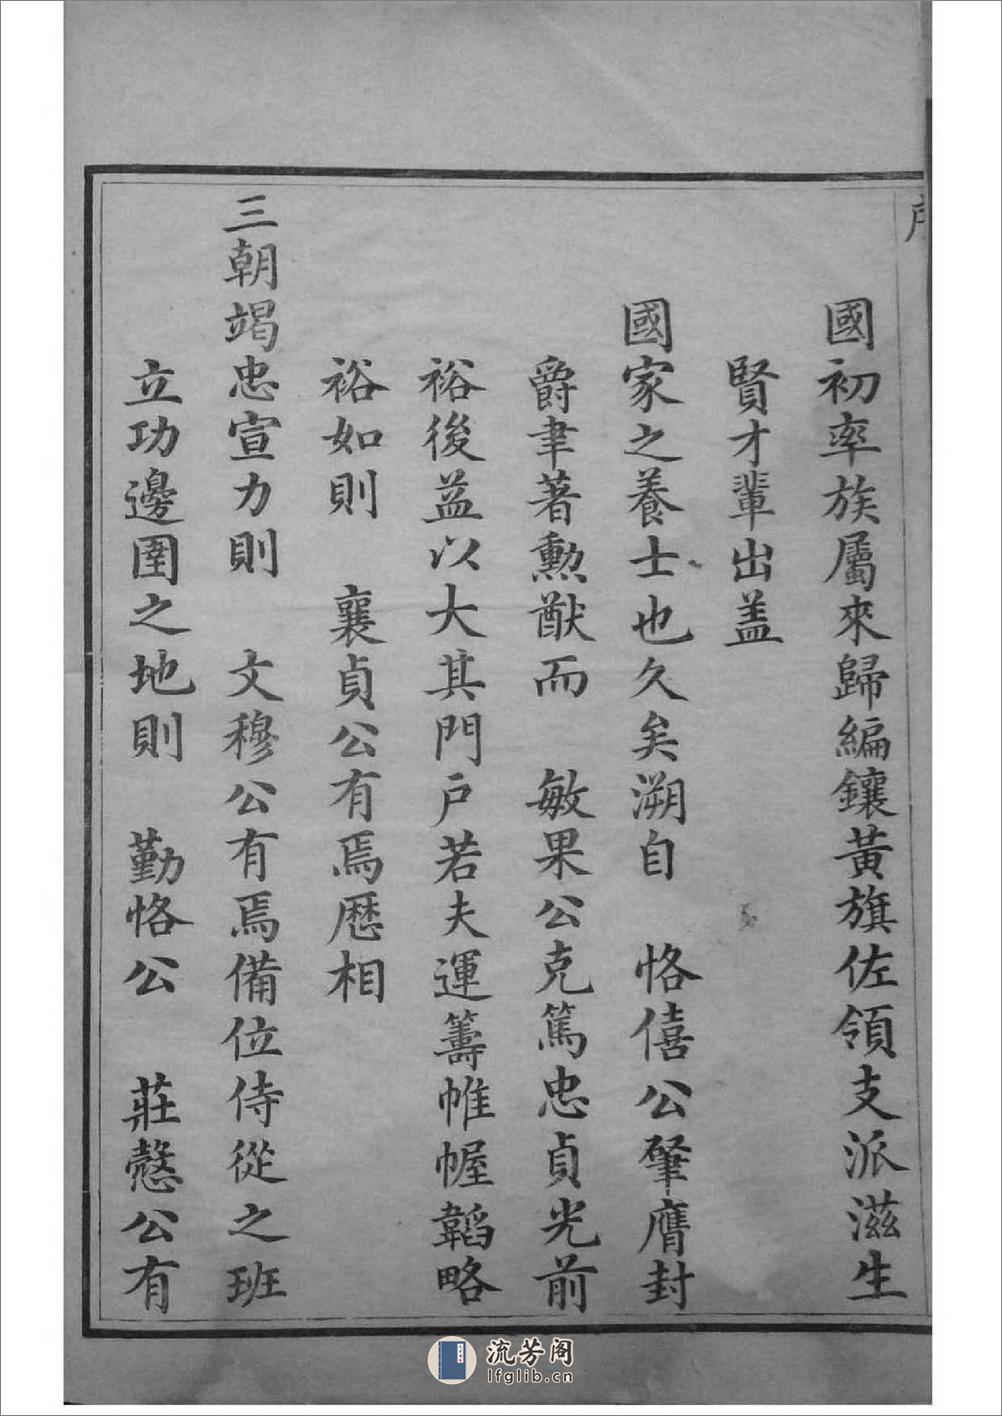 國初率族屬來歸編鑲黃旗佐領支派滋生
賢才輩出蓋
國家之養士也久矣溯自　恪僖公肇膺封
爵聿著勳猷而　敏果公克篤忠貞光前
裕後益以大其門戶若夫運籌帷幄韜略
裕如則　襄貞公有焉歷相
三朝竭忠宣力則　文穆公有焉備位侍從之班
立功邊圉之地則　勤恪公　莊慤公有
流芳阁
lfglib.cn